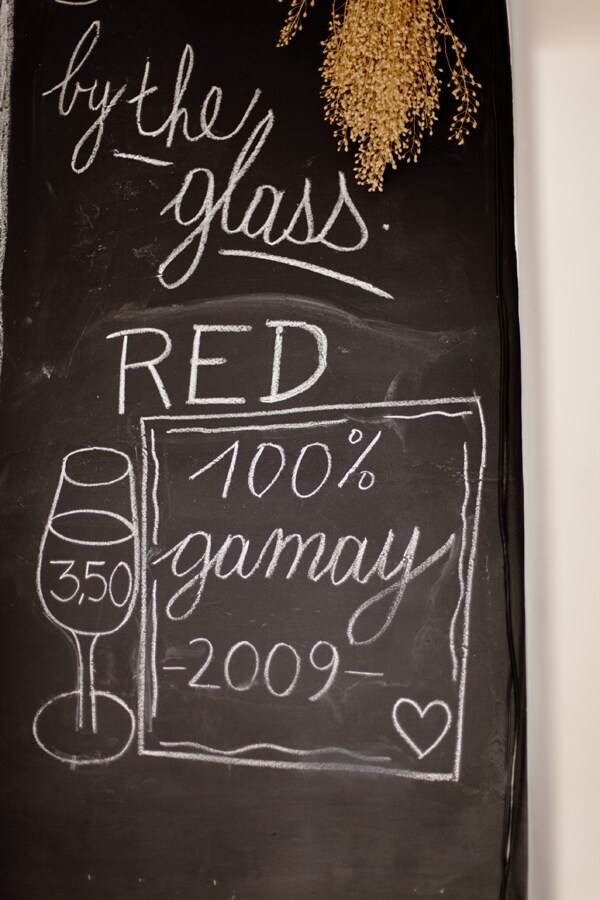 by the
glass.
RED
100%
gamay
3,50
-2009-